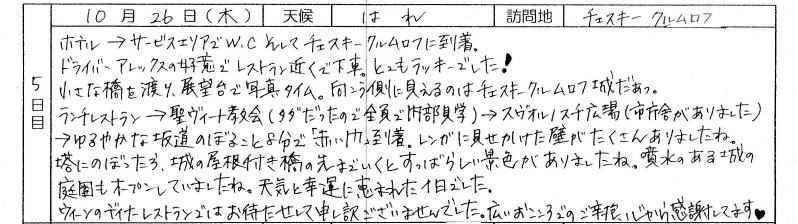 10月26日(木) 天候 はれ 訪問地 チェスキークルムロフ
5日目
ホテル→サービスエリアでW.C そしてチェスキークルムロフに到着。
ドライバーアレックスの好意でレストラン近くで下車。とってもラッキーでした!
小さな橋を渡り、展望台で写真タイム。向こう側に見えるのはチェスキークルムロフ城だぁっ。
ランチレストラン→聖ヴィート教会(タダだったので全員で内部見学)→スヴォルノスチ広場(市庁舎がありました)
→ゆるやかな坂道のぼること8分で「赤い門」到着。レンガに見せかけた壁がたくさんありましたね。
塔にのぼったり、城の屋根付き橋の先までいくとすっばらしい景色がありましたね。噴水のある城の
庭園もオープンしていましたね。天気と幸運に恵まれた1日でした。
ウィーンのディナーレストランではお待たせして申し訳ございませんでした。広いおこころでのご辛抱、心から感謝してます♥